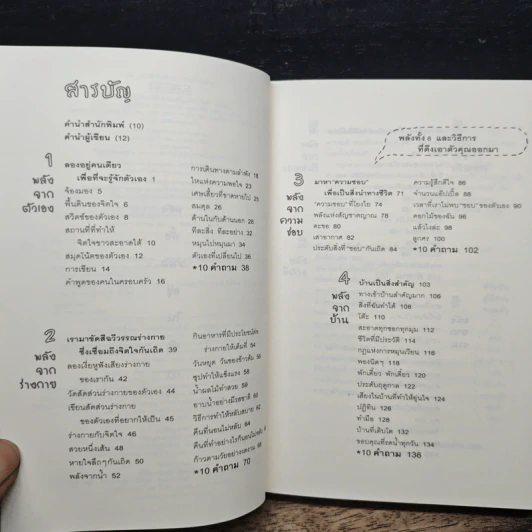 สารบัญ
คำนำสำนักพิมพ์ (10)
คำนำผู้เขียน (12)
1
พลัง
จาก
ตัวเอง
ลองอยู่คนเดียว
เพื่อที่จะรู้จักตัวเอง 1
จ้องมอง 5
พื้นดินของจิตใจ 6
สวิตช์ของตัวเอง 8
สถานที่ที่ทำให้
จิตใจขาวสะอาดได้ 10
สมุดโน้ตของตัวเอง 12
การเขียน 14
คำพูดของคนในครอบครัว 16
การเดินทางตามลำพัง 18
ไหแห่งความพอใจ
เศษเสี้ยวที่ขาดหายไป
สมดุล 26
ด้านในกับด้านนอก 28
ทีละสิ่ง ทีละอย่าง 32
หมุนไปหมุนมา 34
ตัวเองที่เปลี่ยนไป 36
*10 คำถาม 38
2
พลัง
จาก
ร่างกาย
เรามาขัดสีฉวีวรรณร่างกาย
ซึ่งเชื่อมถึงจิตใจกันเถิด 39
ลองเงี่ยหูฟังเสียงร่างกาย
ของเรากัน 42
วัดสัดส่วนร่างกายของตัวเอง 44
เขียนสัดส่วนร่างกาย
ของตัวเองที่อยากให้เป็น 45
ร่างกายกับจิตใจ 46
สวยหนึ่งเส้น 48
หายใจลึกๆกันเถิด 50
พลังจากน้ำ 52
กินอาหารที่มีประโยชน์ต่อ
ร่างกายให้เต็มที่ 54
วันหยุด วันของข้าวต้ม
ซุปทำให้แข็งแรง
น้ำผลไม้ทำสวย
อาบน้ำอย่างมีรสชาติ
วิธีการทำให้หลับสบาย
คืนที่นอนไม่หลับ 64
คืนที่ทำอย่างไรก็นอนไม่หลับ
ก้าวตามวัยอย่างงดงาม 68
*10 คำถาม 70
พลังทั้ง 8 และวิธีการ
ที่ดึงเอาตัวคุณออกมา
3
พลัง
จาก
ความ
ชอบ
มาหา "ความชอบ"
เพื่อเป็นสิ่งนำทางชีวิต 71
"ความชอบ" ที่โยงใย 74
พลังแห่งสัญชาตญาณ 78
ตะขอ 80
เสาอากาศ 82
ประดับสิ่งที่ "ชอบ" กันเถิด 84
ความรู้สึกดีใจ 86
จำนวนแอ๊ปเปิ้ล 88
เวลาที่เราไม่พบ "ชอบ" ของตัวเอง 90
ดอกไม้ของฉัน 94
แล้วไงล่ะ 98
ลูกศร 100
*10 คำถาม 102
4
พลัง
จาก
บ้าน
บ้านเป็นสิ่งสำคัญ 103
ทางเข้าบ้านสำคัญมาก 106
สิ่งที่ฉันทำได้ 108
โต๊ะ 110
สะอาดทุกซอกทุกมุม 112
ชีวิตที่มีประวัติ 114
กฎแห่งการหมุนเวียน 116
พองนิดๆ 118
พักเดี๋ยว พักเดี๋ยว 120
ประดับฤดูกาล 122
เสียงในบ้านที่ทำให้อุ่นใจ 124
ปฏิทิน 126
ทำมือ 128
บ้านที่เติบโต 130
ขอบคุณที่รดน้ำทุกวัน 134
*10 คำถาม 136